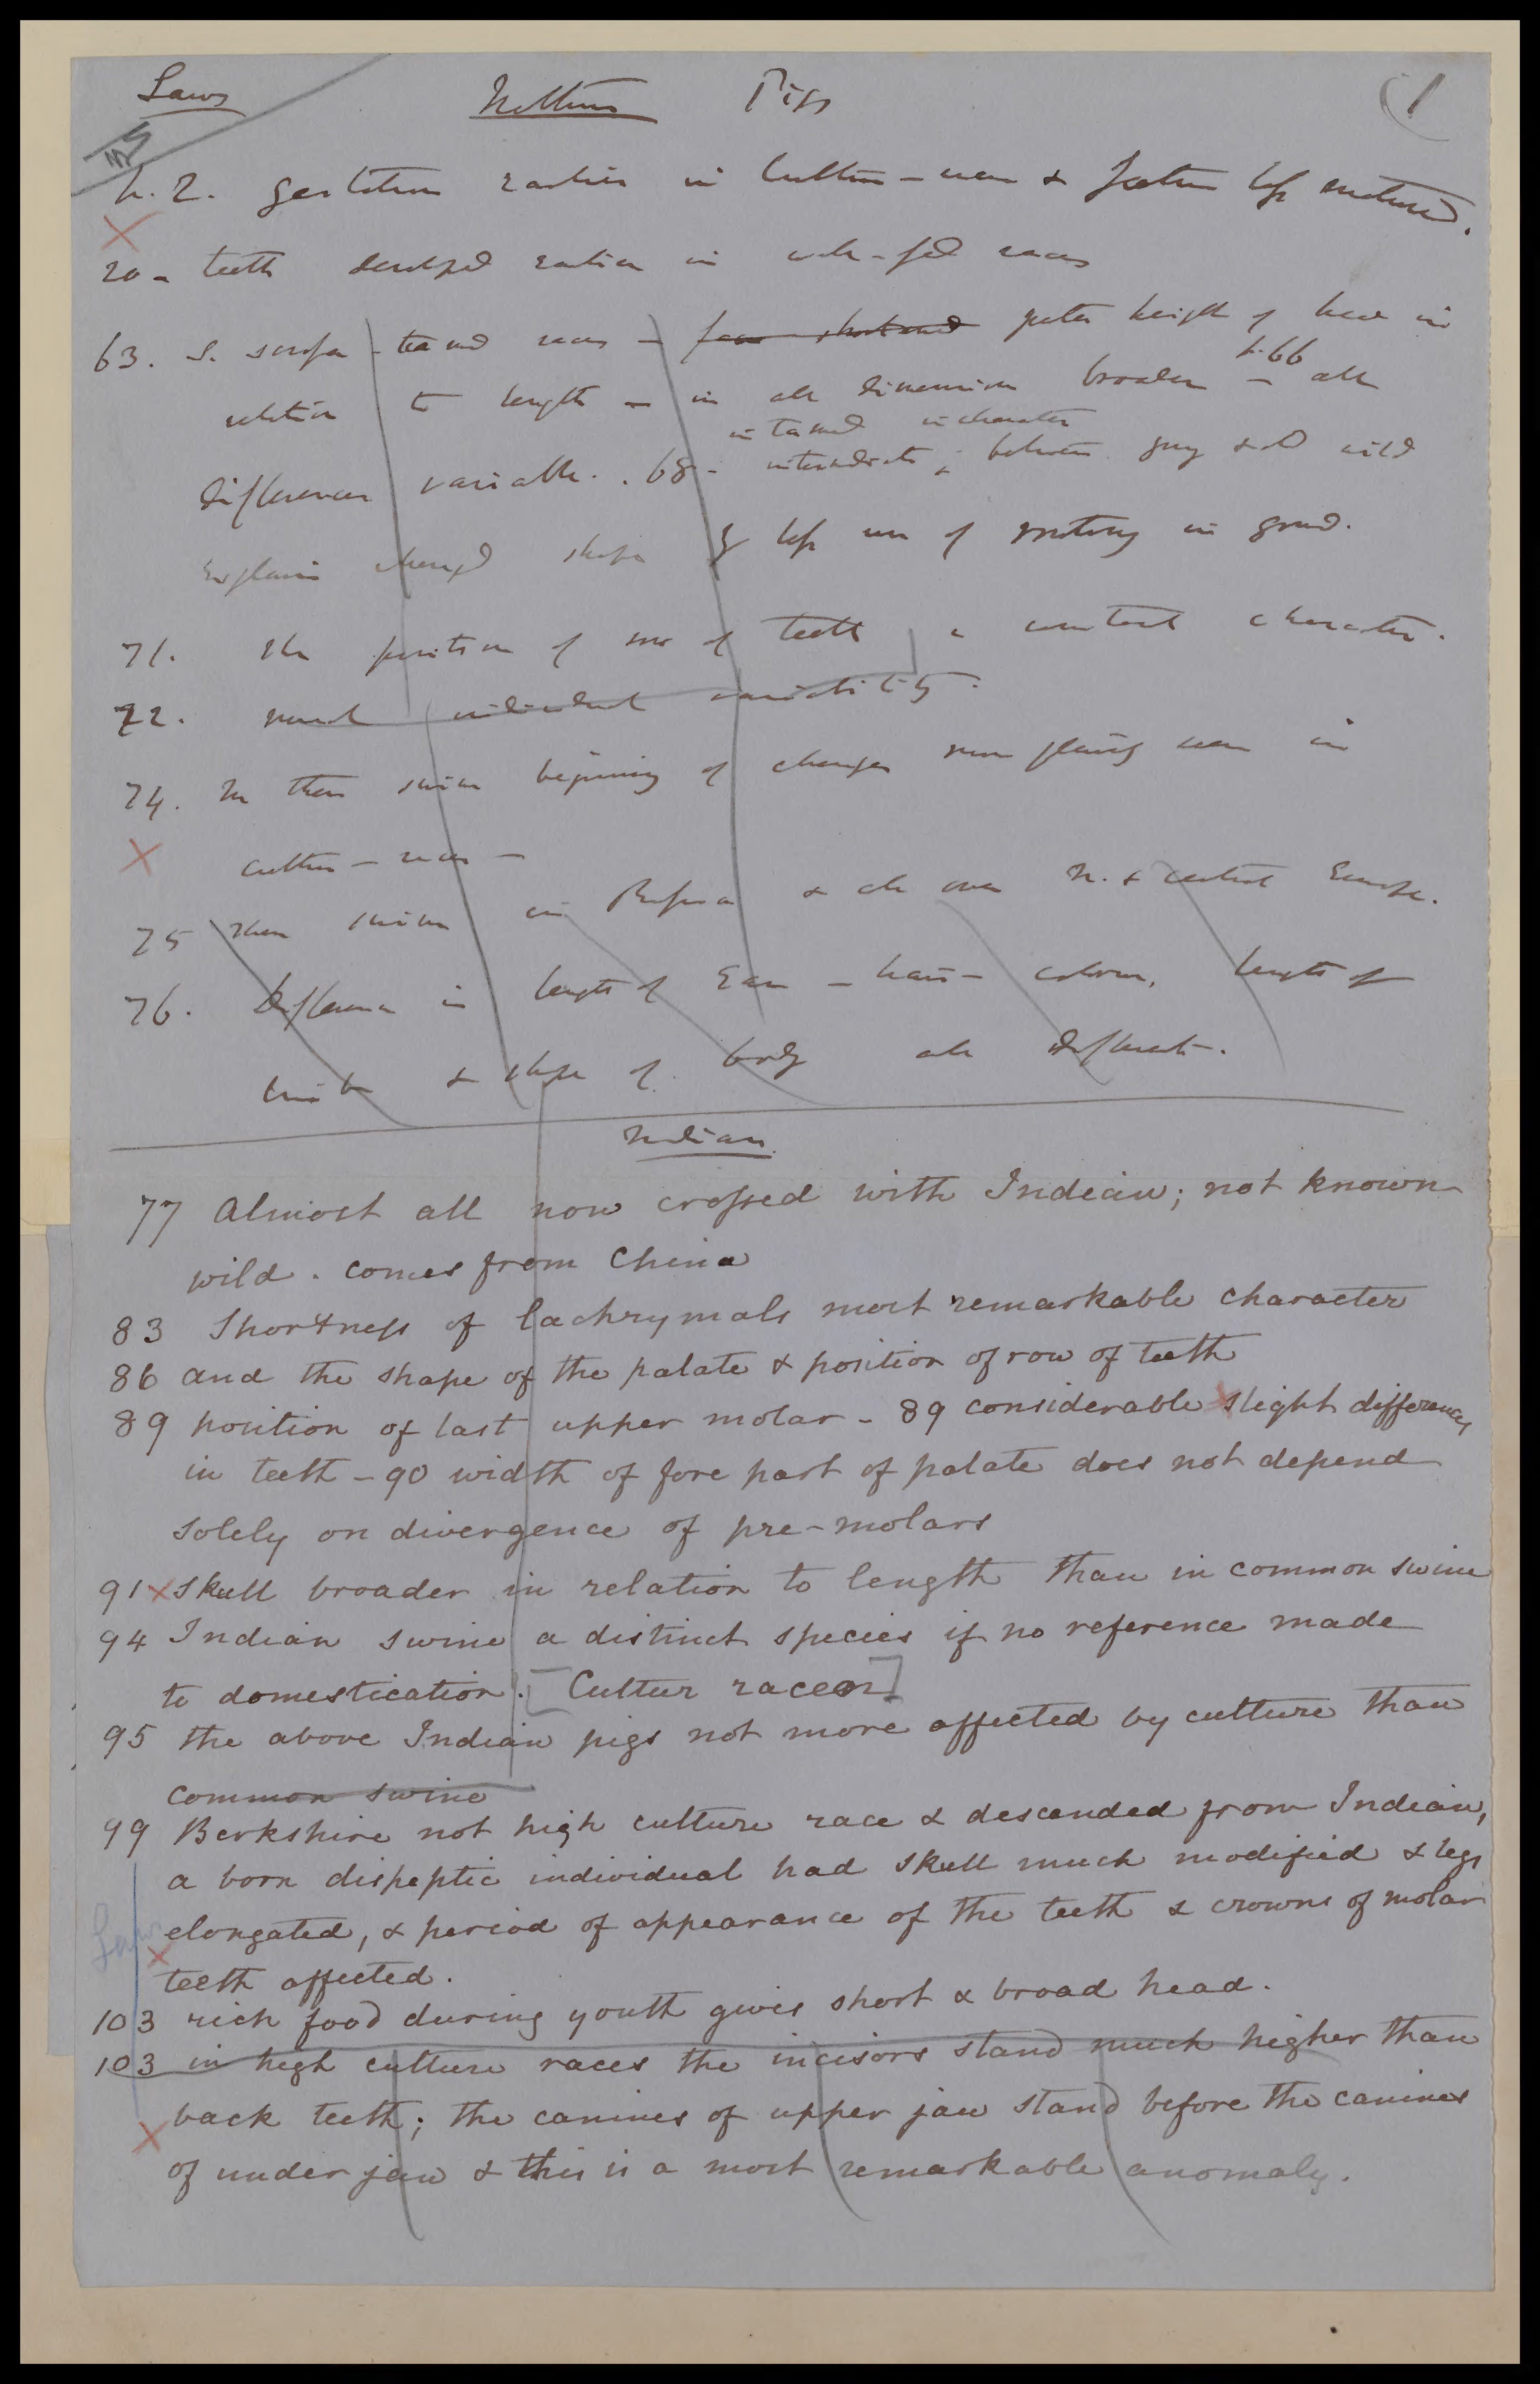 Laws
Nathusius Pigs
(1
p. 2. gestation earlier in Cultur-races & foetus less matured.
20 - teeth developed earlier in well-fed races
63. S. scrofa - tamed races - greater height of head in p. 66
relation to length - in all dimensions broader - all
in tamed in character
differences variable. . 68 - intermediate between young & old wild
Explains changed shape by less use of rooting in ground.
71. The position of row of teeth a constant character.
72. much individual variability.
74. In these swine beginning of changes more plainly seen in
Cultur-races -
75 These swine in Russia & all over N. & central Europe.
76. Difference in length of Ears - hair - colour, length of
limbs & shape of body all different.
Indian
77 Almost all now crossed with Indian; not known
wild. comes from China
83 Shortness of lachrymals most remarkable character
86 and the shape of the palate & position of row of teeth
89 position of last upper molar - 89 considerable slight differences
in teeth - 90 width of fore part of palate does not depend
solely on divergence of pre-molars
91 skull broader in relation to length than in common swine
94 Indian swine a distinct species if no reference made
to domestication. [Cultur races]
95 the above Indian pigs not more affected by culture than
common swine
99 Berkshire not high culture race & descended from Indian,
a born dispeptic individual had skull much modified & legs
elongated, & period of appearance of the teeth & crowns of molar
Laws
teeth affected.
103 rich food during youth gives short & broad head.
103 in high culture races the incisors stand much higher than
back teeth; the canines of upper jaw stand before the canines
of under jaw & this is a most remarkable anomaly.